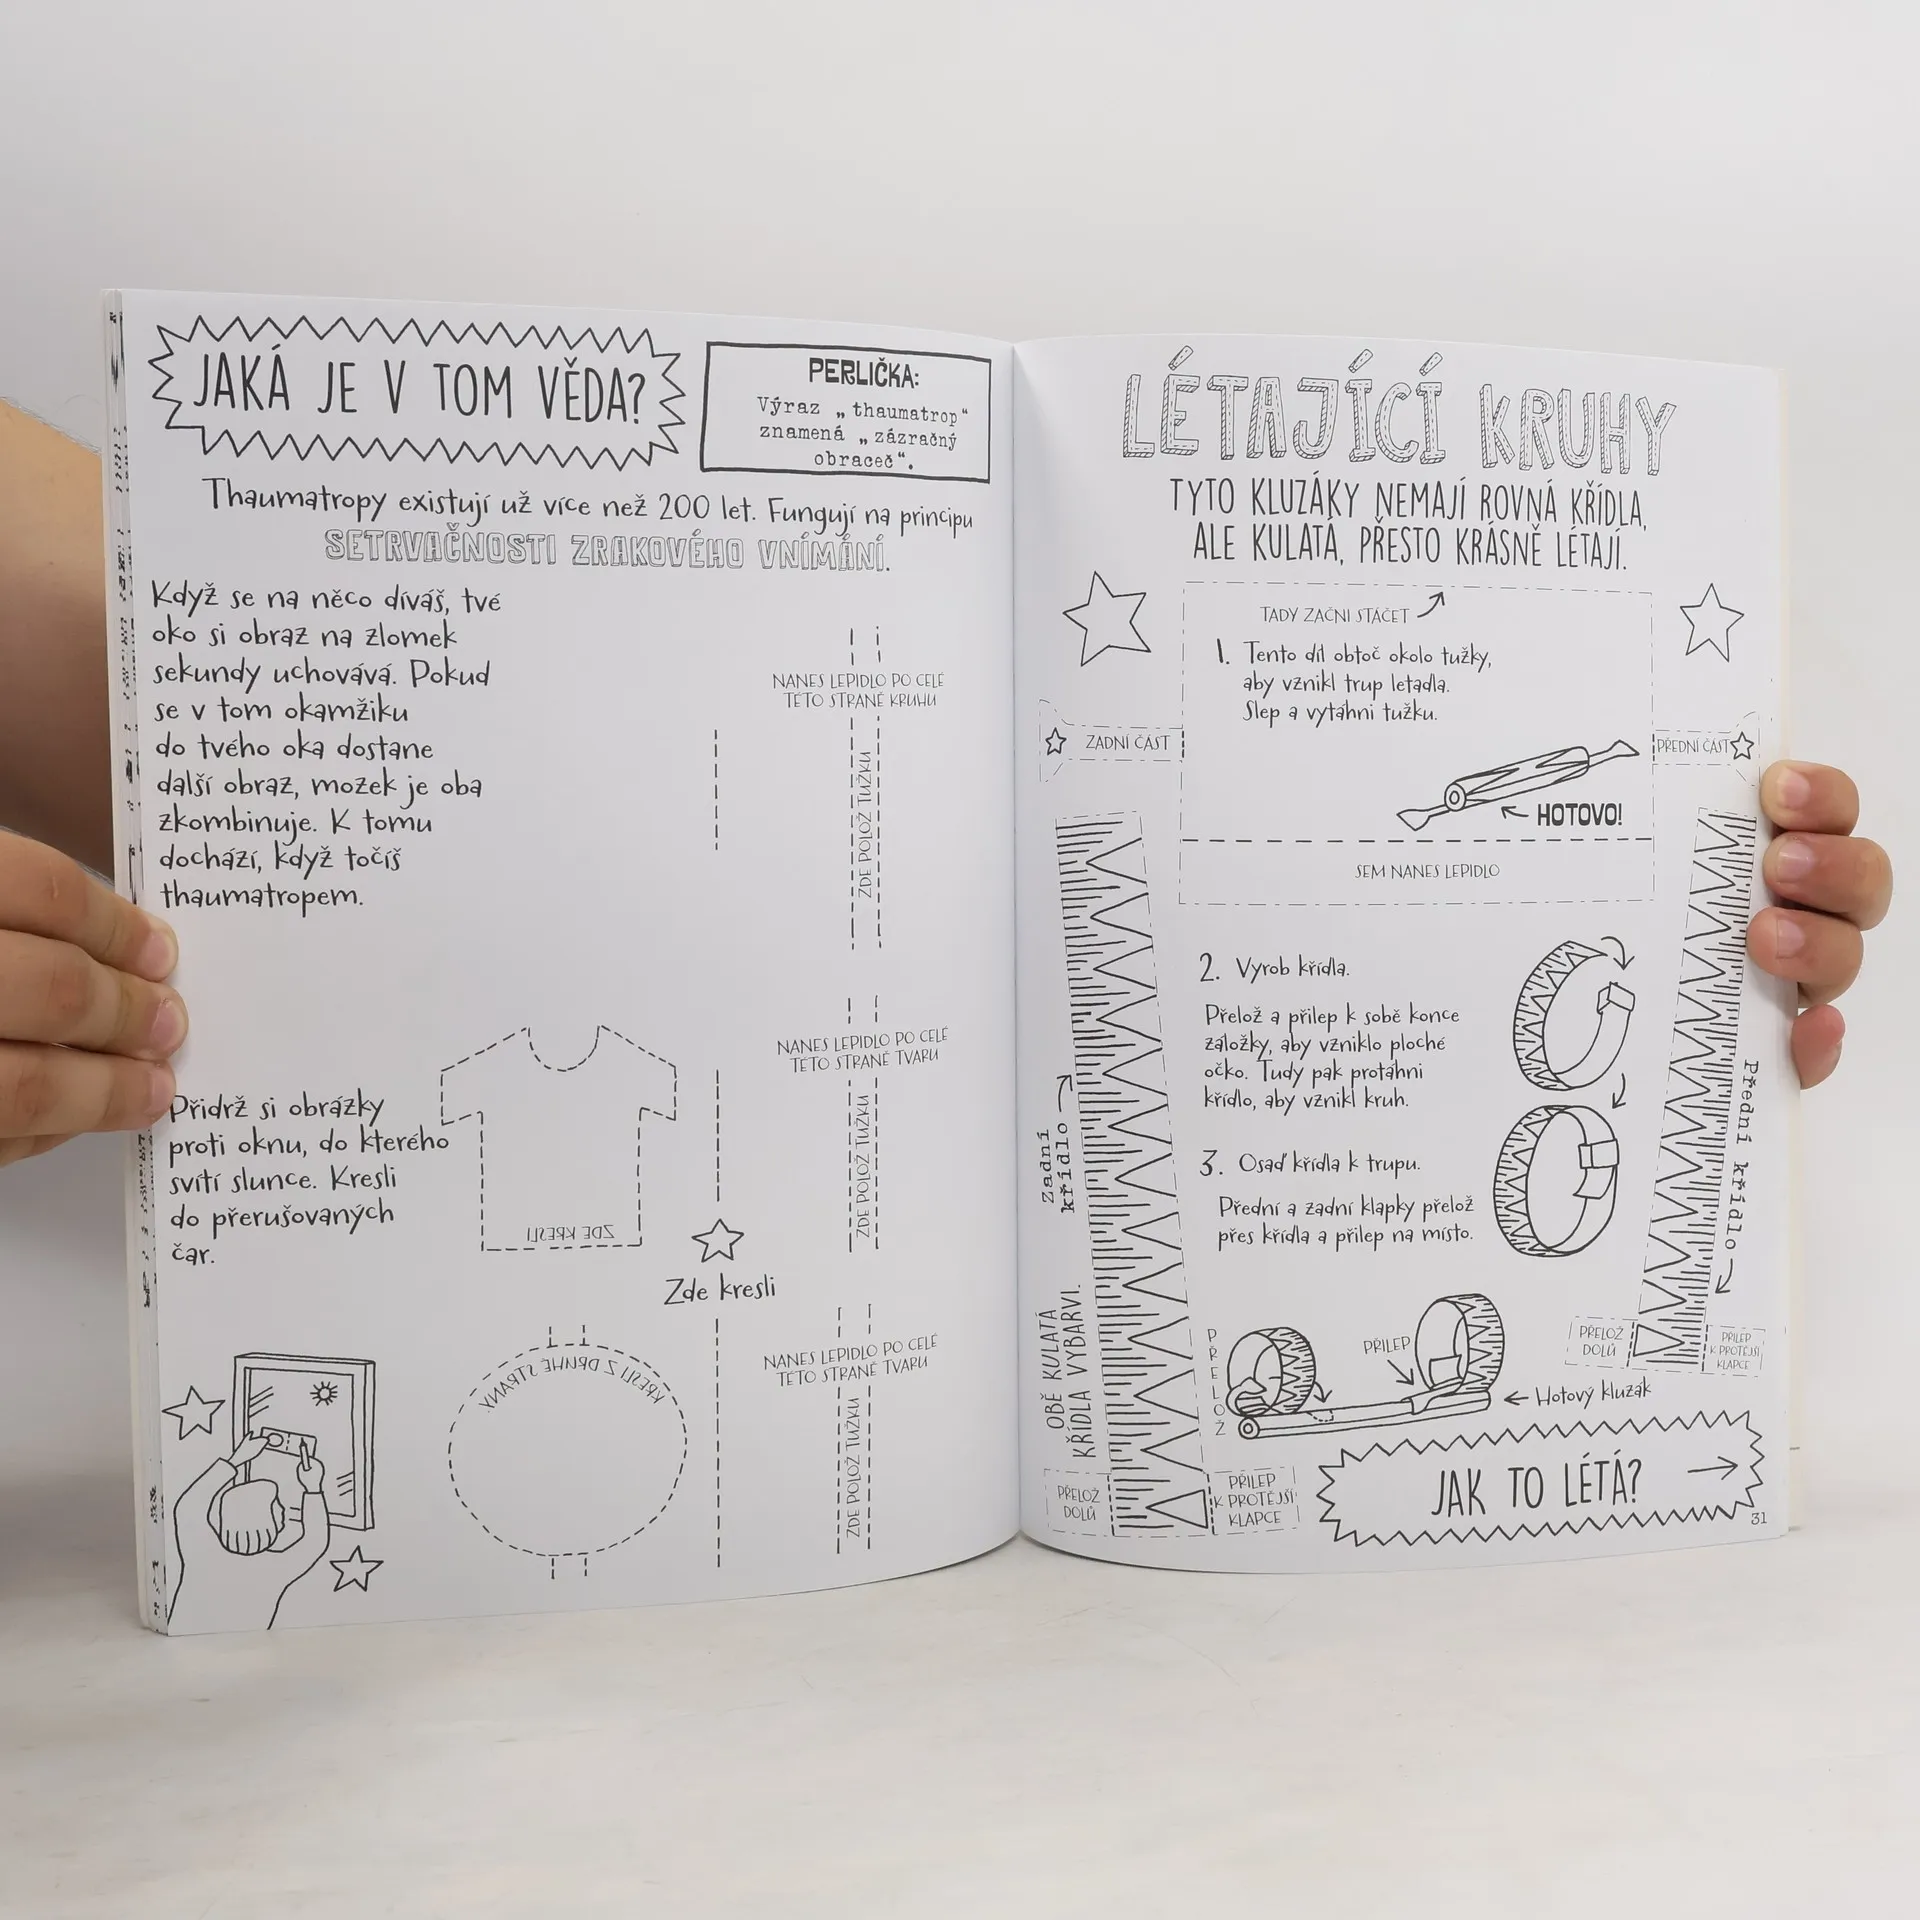 JAKÁ JE V TOM VĚDA?
PERLIČKA:
Výraz „thaumatrop“
znamená „zázračný
obraceč“.
Thaumatropy existují už více než 200 let. Fungují na principu
SETRVAČNOSTI ZRAKOVÉHO VNÍMÁNÍ.
Když se na něco díváš, tvé
oko si obraz na zlomek
sekundy uchovává. Pokud
se v tom okamžiku
do tvého oka dostane
další obraz, mozek je oba
zkombinuje. K tomu
dochází, když točíš
thaumatropem.
NANES LEPIDLO PO CELÉ
TÉTO STRANĚ KRUHU
ZDE POLOŽ TUŽKU
Přidrž si obrázky
proti oknu, do kterého
svítí slunce. Kresli
do přerušovaných
čar.
ZDE KRESLI
NANES LEPIDLO PO CELÉ
TÉTO STRANĚ TVARU
ZDE POLOŽ TUŽKU
Zde kresli
KRESLI Z DRUHÉ STRANY.
NANES LEPIDLO PO CELÉ
TÉTO STRANĚ TVARU
ZDE POLOŽ TUŽKU
LÉTAJÍCÍ KRUHY
TYTO KLUZÁKY NEMAJÍ ROVNÁ KŘÍDLA,
ALE KULATÁ, PŘESTO KRÁSNĚ LÉTAJÍ.
TADY ZAČNI STÁČET
1. Tento díl obtoč okolo tužky,
aby vznikl trup letadla.
Slep a vytáhni tužku.
ZADNÍ ČÁST
PŘEDNÍ ČÁST
HOTOVO!
SEM NANES LEPIDLO
2. Vyrob křídla.
Přelož a přilep k sobě konce
záložky, aby vzniklo ploché
očko. Tudy pak protáhni
křídlo, aby vznikl kruh.
Zadní
křídlo
Přední křídlo
3. Osaď křídla k trupu.
Přední a zadní klapky přelož
přes křídla a přilep na místo.
OBĚ KULATÁ
KŘÍDLA VYBARVI.
PŘELOŽ
PŘILEP
Hotový kluzák
PŘELOŽ
DOLŮ
PŘILEP
K PROTĚJŠÍ
KLAPCE
PŘELOŽ
DOLŮ
PŘILEP
K PROTĚJŠÍ
KLAPCE
JAK TO LÉTÁ?
31